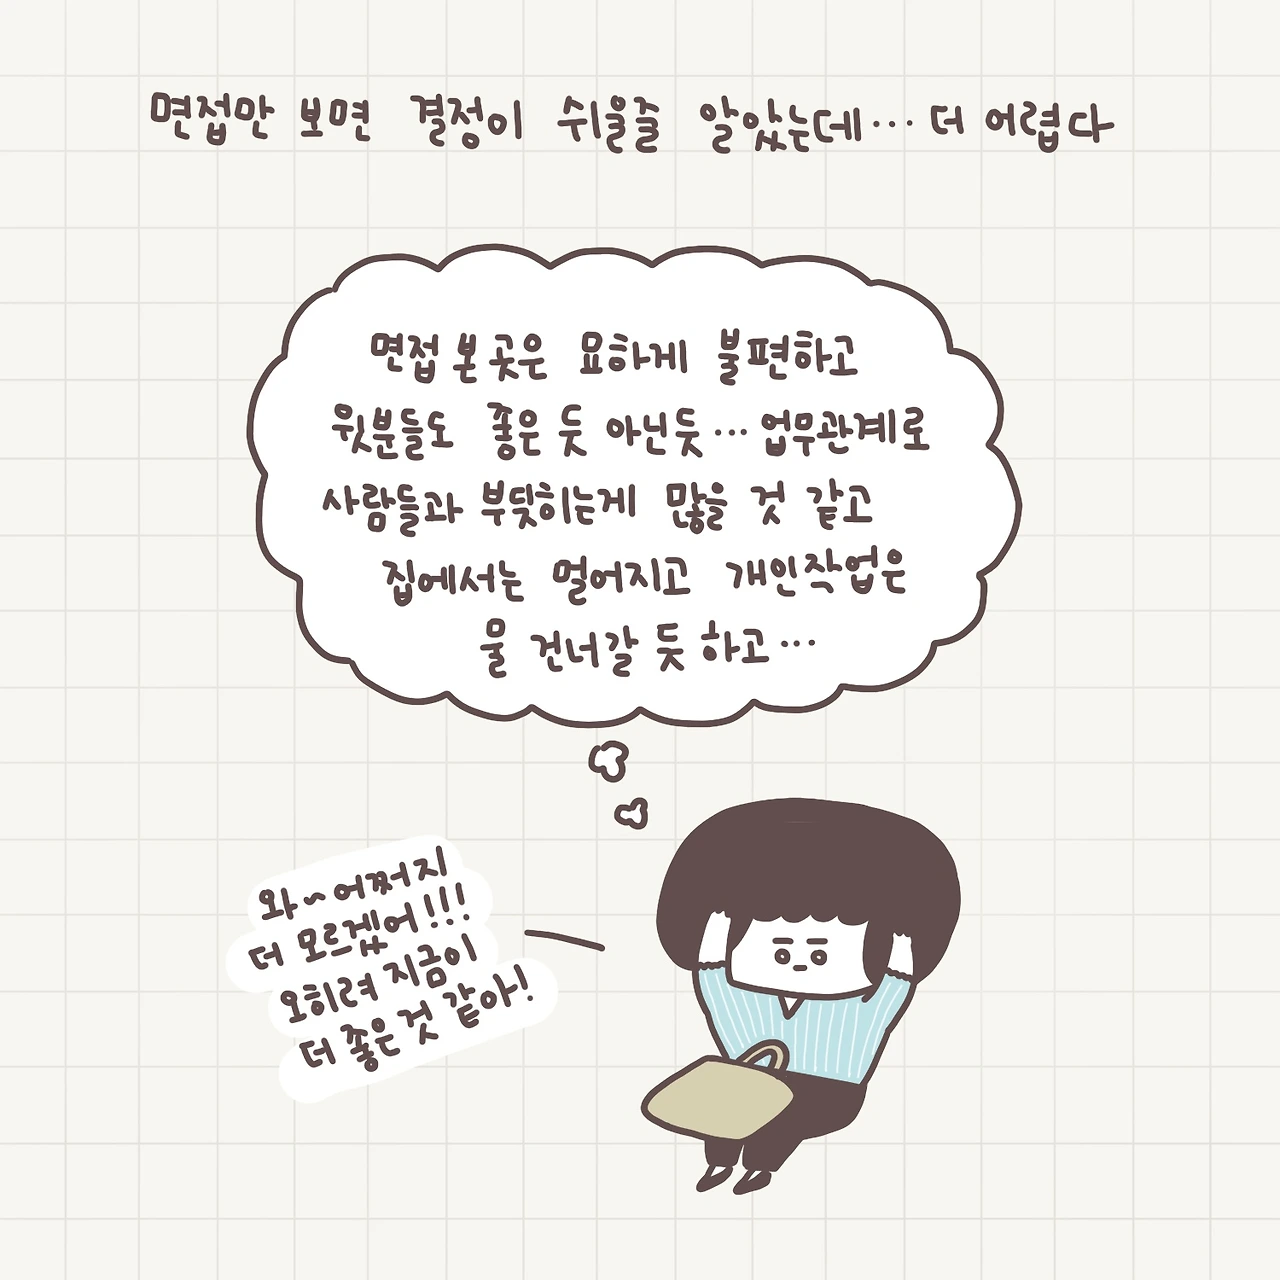 면접만 보면 결정이 쉬울줄 알았는데... 더 어렵다
면접 본 곳은 묘하게 불편하고
윗분들도 좋은 듯 아닌듯... 업무관계로
사람들과 부딪히는게 많을 것 같고
집에서는 멀어지고 개인작업은
물 건너갈 듯 하고...
와~어쩌지
더 모르겠어!!!
오히려 지금이
더 좋은 것 같아!